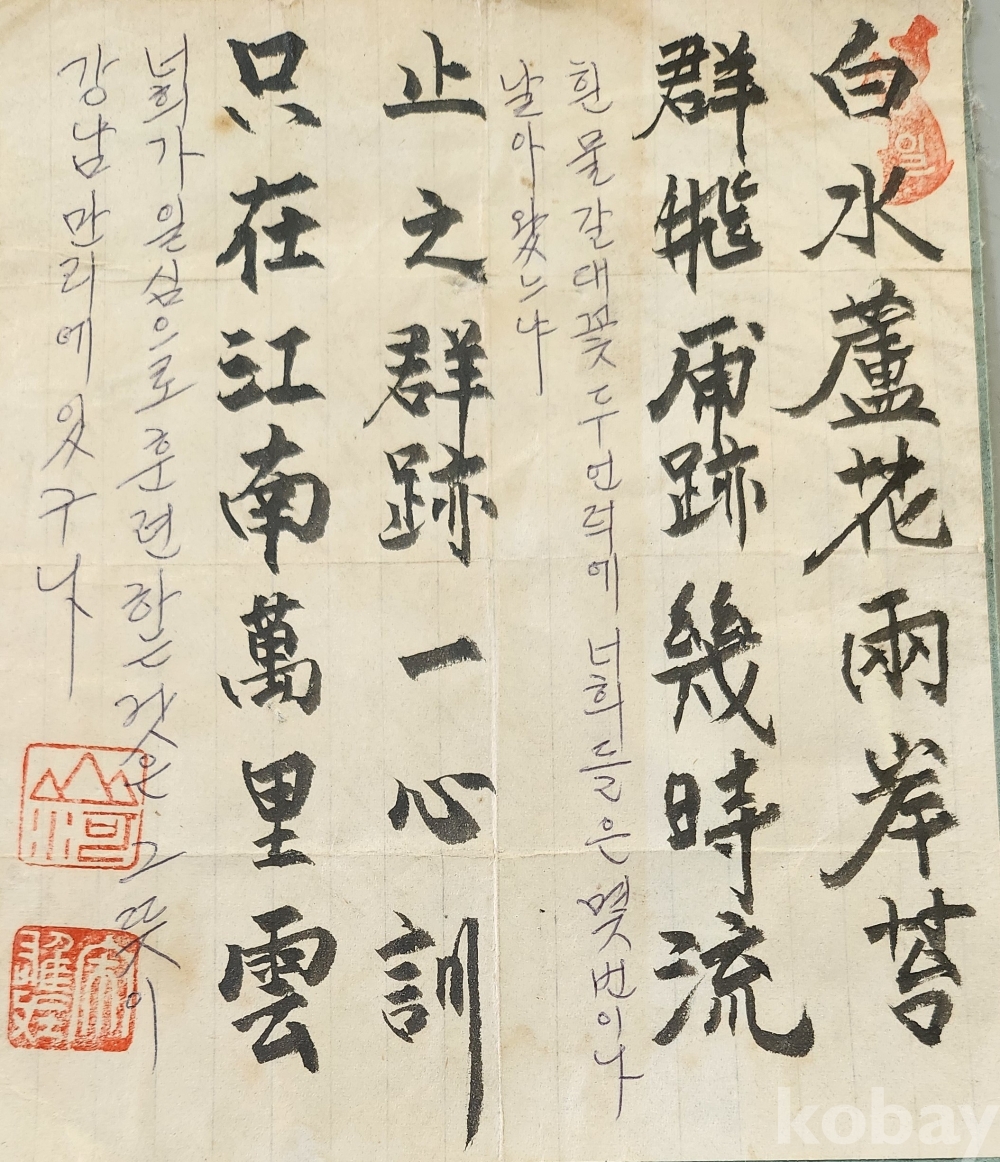 일
白水蘆花兩岸苔
群飛跡幾時流
흰 물 갈대꽃 두 언덕에 너희들은 몇 번이나
날아 왔느냐
止之群跡一心訓
只在江南萬里雲
너희가 일심으로 훈련하는 것은 그 뜻이
강남 만리에 있구나
kobay